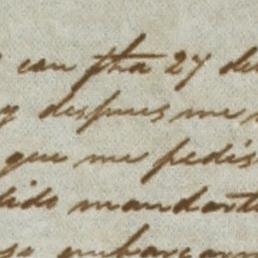 con fha 27 de
y despues me
que me pedis
dido mandart
embarcar